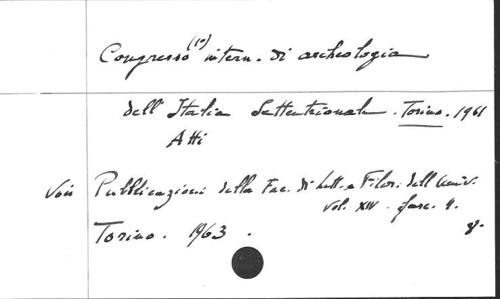 Congresso (1°) intern. di archeologia
dell'Italia Settentrionale. Torino. 1961
Atti
Voir Pubblicazioni della Fac. di Lett. e Filos. dell'Univ.
vol. XIV. fasc. 4.
Torino. 1963. 8°